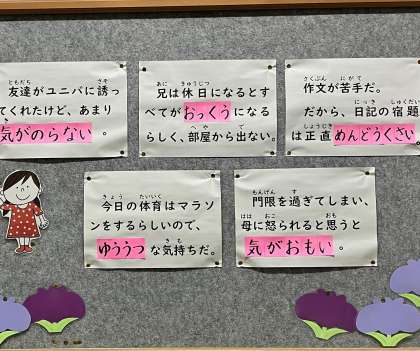 友達がユニバに誘っ
てくれたけど、あまり
気がのらない。
兄は休日になるとす
べてがおっくうになる
らしく、部屋から出ない。
作文が苦手だ。
だから、日記の宿題
は正直めんどうくさい。
今日の体育はマラソ
ンをするらしいので、
ゆううつな気持ちだ。
門限を過ぎてしまい、
母に怒られると思うと
気がおもい。